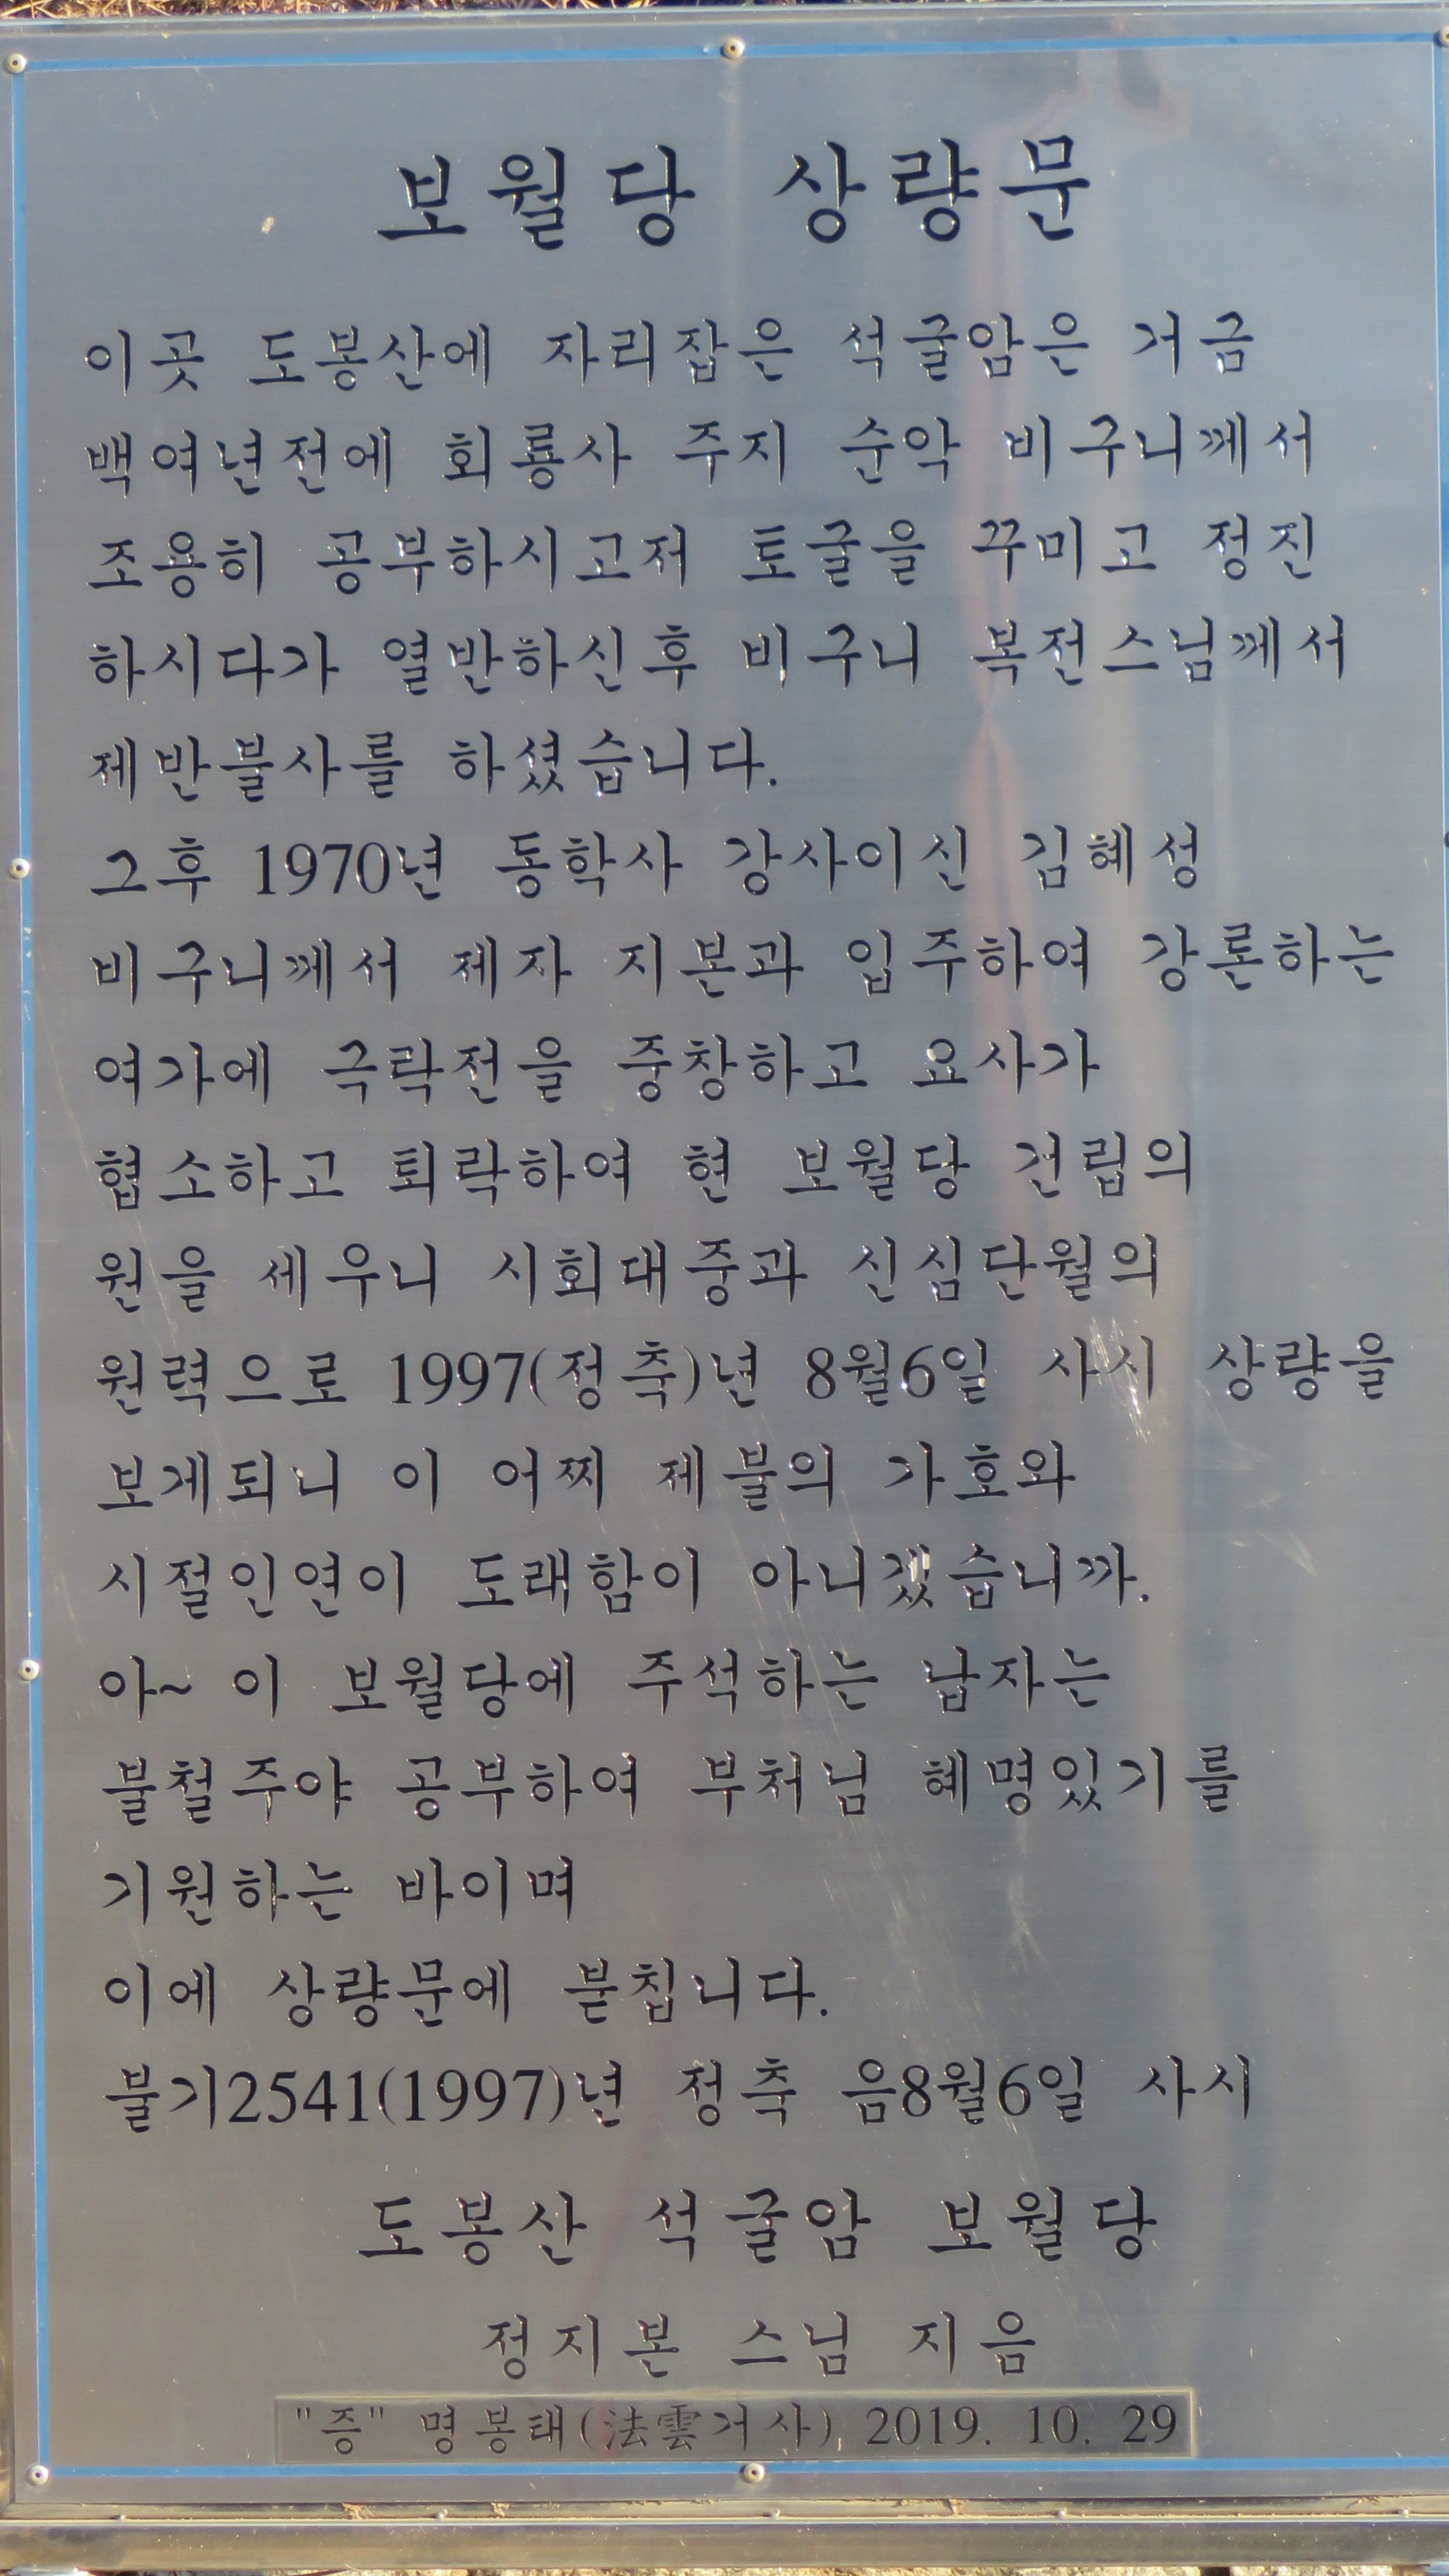 보월당 상량문
이곳 도봉산에 자리잡은 석굴암은 거금
백여년전에 회룡사 주지 순악 비구니께서
조용히 공부하시고저 토굴을 꾸미고 정진
하시다가 열반하신후 비구니 복전스님께서
제반불사를 하셨습니다.
그후 1970년 동학사 강사이신 김혜성
비구니께서 제자 지본과 입주하여 강론하는
여가에 극락전을 중창하고 요사가
협소하고 퇴락하여 현 보월당 건립의
원을 세우니 시회대중과 신심단월의
원력으로 1997(정축)년 8월6일 사시 상량을
보게되니 이 어찌 제불의 가호와
시절인연이 도래함이 아니겠습니까.
아~ 이 보월당에 주석하는 납자는
불철주야 공부하여 부처님 혜명있기를
기원하는 바이며
이에 상량문에 붙칩니다.
불기2541(1997)년 정축 음8월6일 사시
도봉산 석굴암 보월당
정지본 스님 지음
"증" 명봉태(法雲거사) 2019. 10. 29